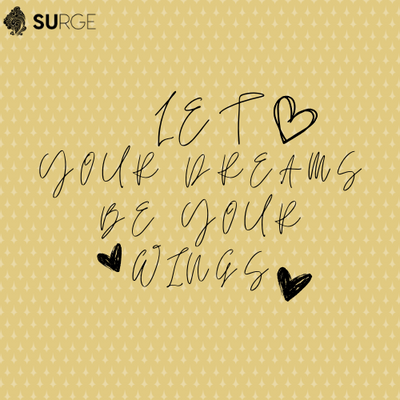 SURGE
LET
YOUR DREAMS
BE YOUR
WINGS